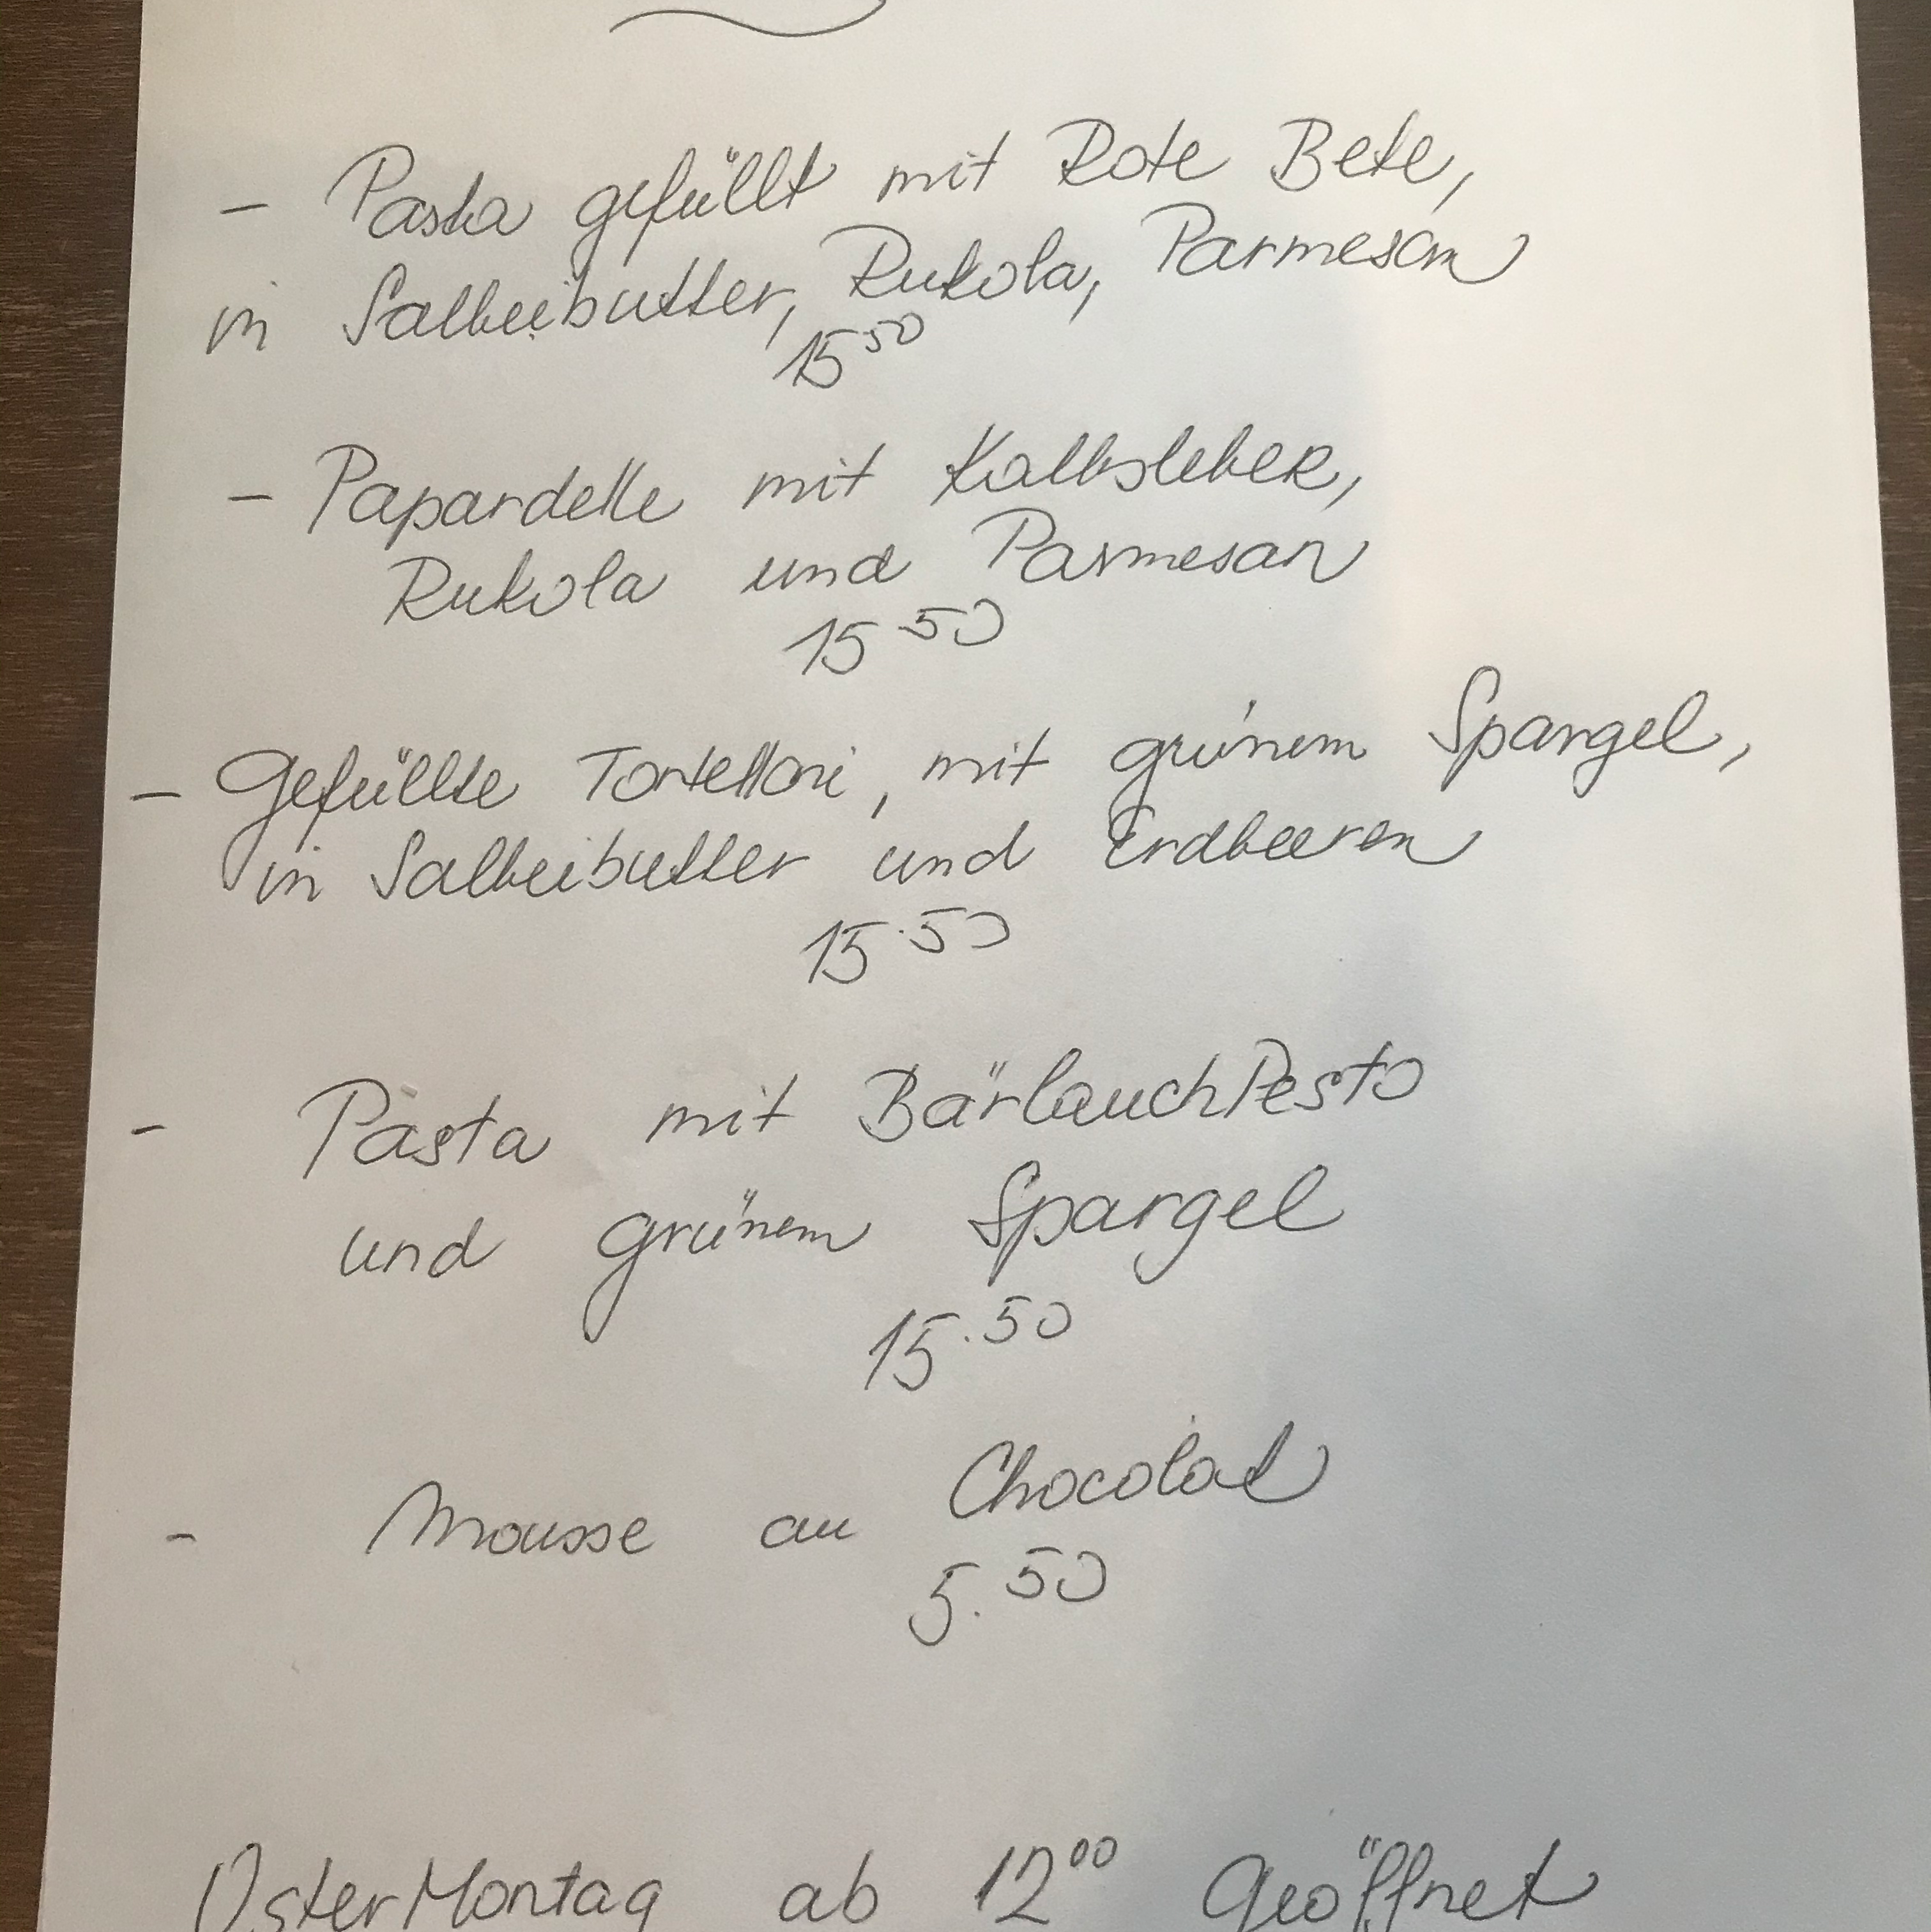 - Pasta gefüllt mit Rote Bete,
in Salbeibutter, Rukola, Parmesan
15 50
- Papardelle mit Kalbsleber,
Rukola und Parmesan
15 50
- Gefüllte Tortelloni, mit grünem Spargel,
in Salbeibutter und Erdbeeren
15.50
- Pasta mit BärlauchPesto
und grünem Spargel
15.50
- Mousse au Chocolat
5.50
OsterMontag ab 12 00 Geöffnet